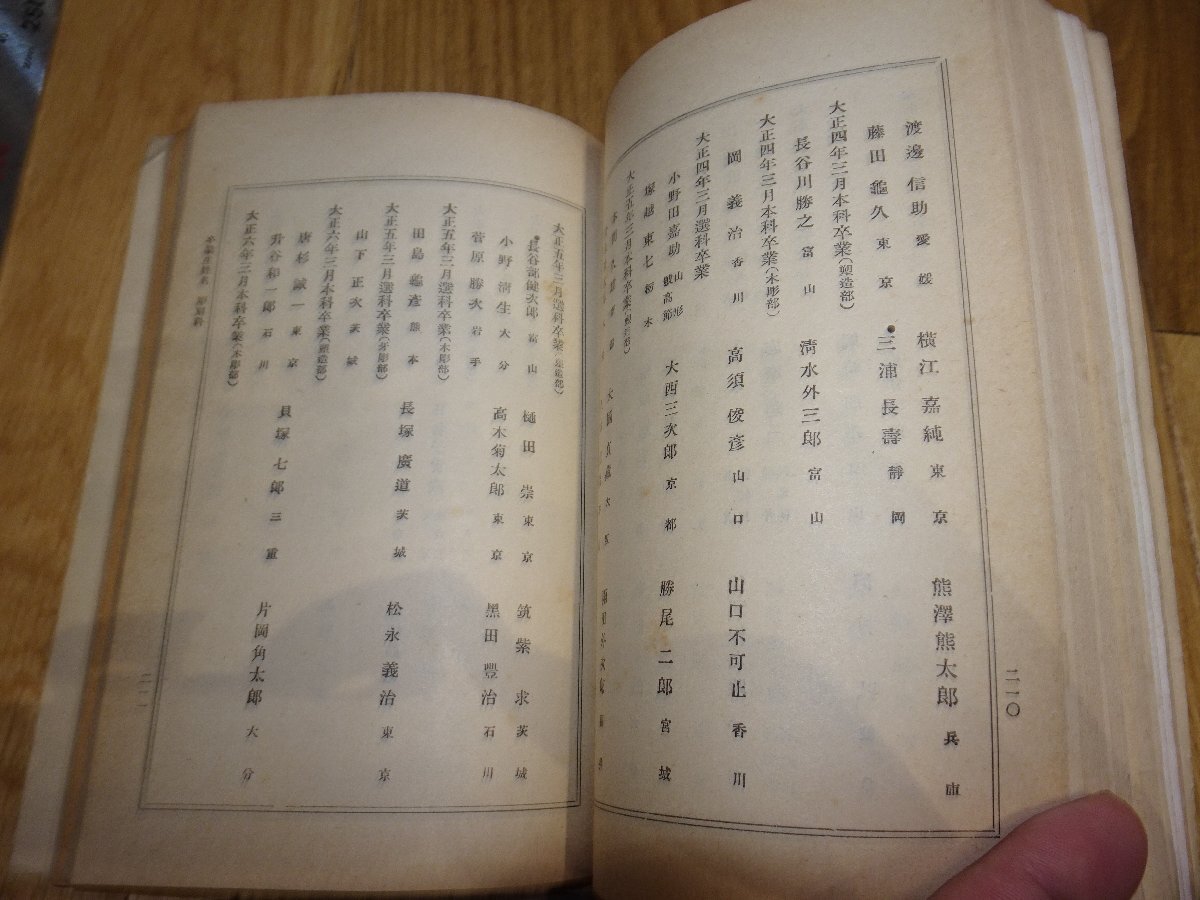 渡邊信助 愛媛 横江嘉純 東京 熊澤熊太郎 兵庫
藤田龜久 東京 三浦長壽 靜岡
大正四年三月本科卒業(塑造部)
長谷川勝之 富山 淸水外三郎 富山
大正四年三月本科卒業(木彫部)
岡義治 香川 高須俊彦 山口 山口不可止 香川
大正四年三月選科卒業
小野田嘉助 山形 大西三次郎 京都 勝尾二郎 宮城
塚越東七 栃木
大正五年三月本科卒業(塑造部)
二一〇
大正五年三月選科卒業(塑造部)
長谷部健次郎 富山 樋田崇 東京 筑紫求 茨城
小野淸生 大分 高木菊太郎 東京 黑田豐治 石川
菅原勝次 岩手
大正五年三月選科卒業(木彫部)
田島龜彦 熊本 長塚廣道 茨城 松永義治 東京
大正五年三月選科卒業
山下正次 茨城
大正六年三月本科卒業(塑造部)
唐杉誠一 東京 貝塚七郎 三重 片岡角太郎 大分
升谷和一郎 石川
大正六年三月本科卒業(木彫部)
卒業生姓名